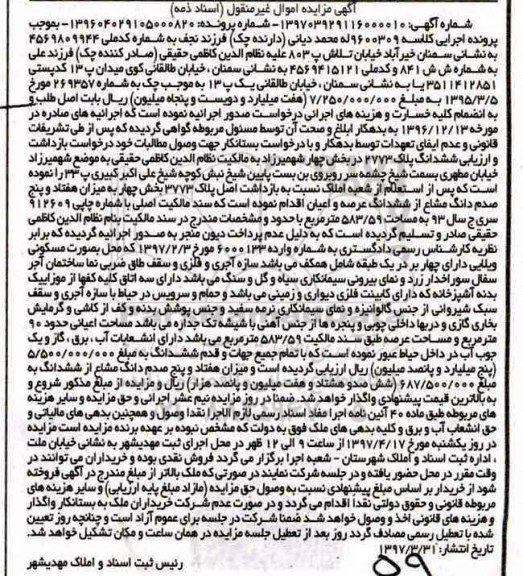 آگهی مزایده اموال غیرمنقول (اسناد ذمه)
شماره آگهی: 139703929116000010- شماره پرونده: 139604029105000820- بموجب
پرونده اجرایی کلاسه 9600309له محمد دیانی (دارنده چک) فرزند نجف به شماره کدملی 4569809944
به نشانی سمنان خیرآباد خیابان تلاش پ 803 علیه نظام الدین کاظمی حقیقی (صادر کننده چک) فرزند علی
به شماره ش ش 841 و کدملی 4569415121 به نشانی سمنان ، خیابان طالقانی کوی میدان پ 13 کدپستی
3511412851 یا به نشانی سمنان ، خیابان طالقانی یک پ 13 به موجب چک به شماره 269357 مورخ
1395/3/5 به مبلغ 7/250/000/000 (هفت میلیارد و دویست و پنجاه میلیون) ریال بابت اصل طلب و
به انضمام کلیه خسارت و هزینه های اجرائی درخواست صدور اجرائیه نموده است که اجرائیه های صادره در
مورخه 1396/12/13 به بدهکار ابلاغ و صحت آن توسط مسئول مربوطه گواهی گردیده که پس از طی تشریفات
قانونی و عدم ایفای تعهدات توسط بدهکار و با درخواست بستانکار جهت وصول مطالبات خود درخواست بازداشت
و ارزیابی ششدانگ پلاک 2773 در بخش چهار شهمیرزاد به مالکیت نظام الدین کاظمی حقیقی به موضع شهمیرزاد
خیابان مطهری بسمت شیخ چشمه سر روبروی بن بست پایین شیخ نبش کوچه شیخ علی اکبر کبیری پ 23 را نموده
است که پس از استعلام از شعبه املاک نسبت به بازداشت اصل پلاک 3773 بخش چهار به میزان هفتاد و پنج
صدم دانگ مشاع از ششدانگ عرصه و اعیان اقدام نموده است که سند مالکیت اصلی با شماره چاپی 912609
سری ج سال 93 به مساحت 583/59 مترمربع با حدود و مشخصات مندرج در سند مالکیت بنام نظام الدین کاظمی
حقیقی صادر و تسلیم گردیده است که به دلیل عدم پرداخت دیون منجر به صدور اجرائیه گردیده که برابر
نظریه کارشناس رسمی دادگستری به شماره وارده 6000133 مورخ 1397/2/3 که محل بصورت مسکونی
ویلایی دارای چهار بر در یک طبقه شامل همکف می باشد سازه آجری و فلزی و سقف طاق ضربی نما ساختمان آجر
سفال سوراخدار زرد و نمای بیرونی سیمانکاری سیاه و گل و سنگ می باشد دارای سه اتاق کلیه کفها از موزاییک
بدنه آشپزخانه که دارای کابینت فلزی دیواری و زمینی می باشد و حمام و سرویس در حیاط با سازه آجری و سقف
سبک شیروانی از جنس گالوانیزه و نمای سیمانکاری نرمه سفید و جنس پوشش بدنه و کف از کاشی و گرمایش
بخاری گازی و دربها داخلی چوبی و پنجره ها از جنس آهنی با شیشه تک جداره می باشد مساحت اعیانی حدود 90
مترمربع و مساحت عرصه طبق سند مالکیت 583/59 مترمربع می باشد دارای انشعابات آب ، برق ، گاز و یک
جوب آب در داخل حیاط عبور نموده است که با تمام جمیع جهات و قدم ششدانگ به مبلغ 5/500/000/000
(پنج میلیارد و پانصد میلیون) ریال ارزیابی گردیده است و میزان هفتاد و پنج صدم دانگ مشاع از ششدانگ به
مبلغ 687/500/000 (ششصدو هشتاد و هفت میلیون و پانصد هزار) ریال و مزایده از مبلغ مذکور شروع و
به بالاترین قیمت پیشنهادی واگذار خواهد شد. ضمنا در روز مزایده نیم عشر اجرائی و حق مزایده و سایر هزینه
های مربوطه طبق ماده 40 آئین نامه اجرا مفاد اسناد رسمی لازم الاجرا نقدا وصول و همچنین بدهی های مالیاتی و
حق انشعاب آب و برق و کلیه بدهی های ملک فوق به دولت که مشخص نبوده بر عهده برنده مزایده است مزایده
در روز یکشنبه مورخ 1397/4/17 از ساعت 9 الی 12 ظهر در محل اجرای ثبت مهدیشهر به نشانی خیابان ملت
، اداره ثبت اسناد و املاک شهرستان - شعبه اجرا برگزار می گردد فروش نقدی بوده و خریداران می توانند در
وقت مقرر در محل حضور یافته و در جلسه شرکت نمایند در صورتی که ملک بالاتر از مبلغ مندرج در آگهی فروخته
شود از خریدار بر اساس مبلغ پیشنهادی نسبت به وصول حق مزایده (مازاد مبلغ پایه ارزیابی) و سایر هزینه های
مربوطه قانونی و حقوق دولتی نقدا اقدام می گردد و در صورت عدم شرکت خریداران ملک به بستانکار واگذار
و هزینه های قانونی اخذ و وصول خواهد شد ضمنا شرکت در جلسه برای عموم آزاد است و چنانچه روز تعیین
شده با تعطیل رسمی مصادف گردد روز بعد از تعطیلی جلسه مزایده در همان ساعت و مکان تشکیل خواهد شد.
تاریخ انتشار: 1397/3/31
رئیس ثبت اسناد و املاک مهدیشهر
59